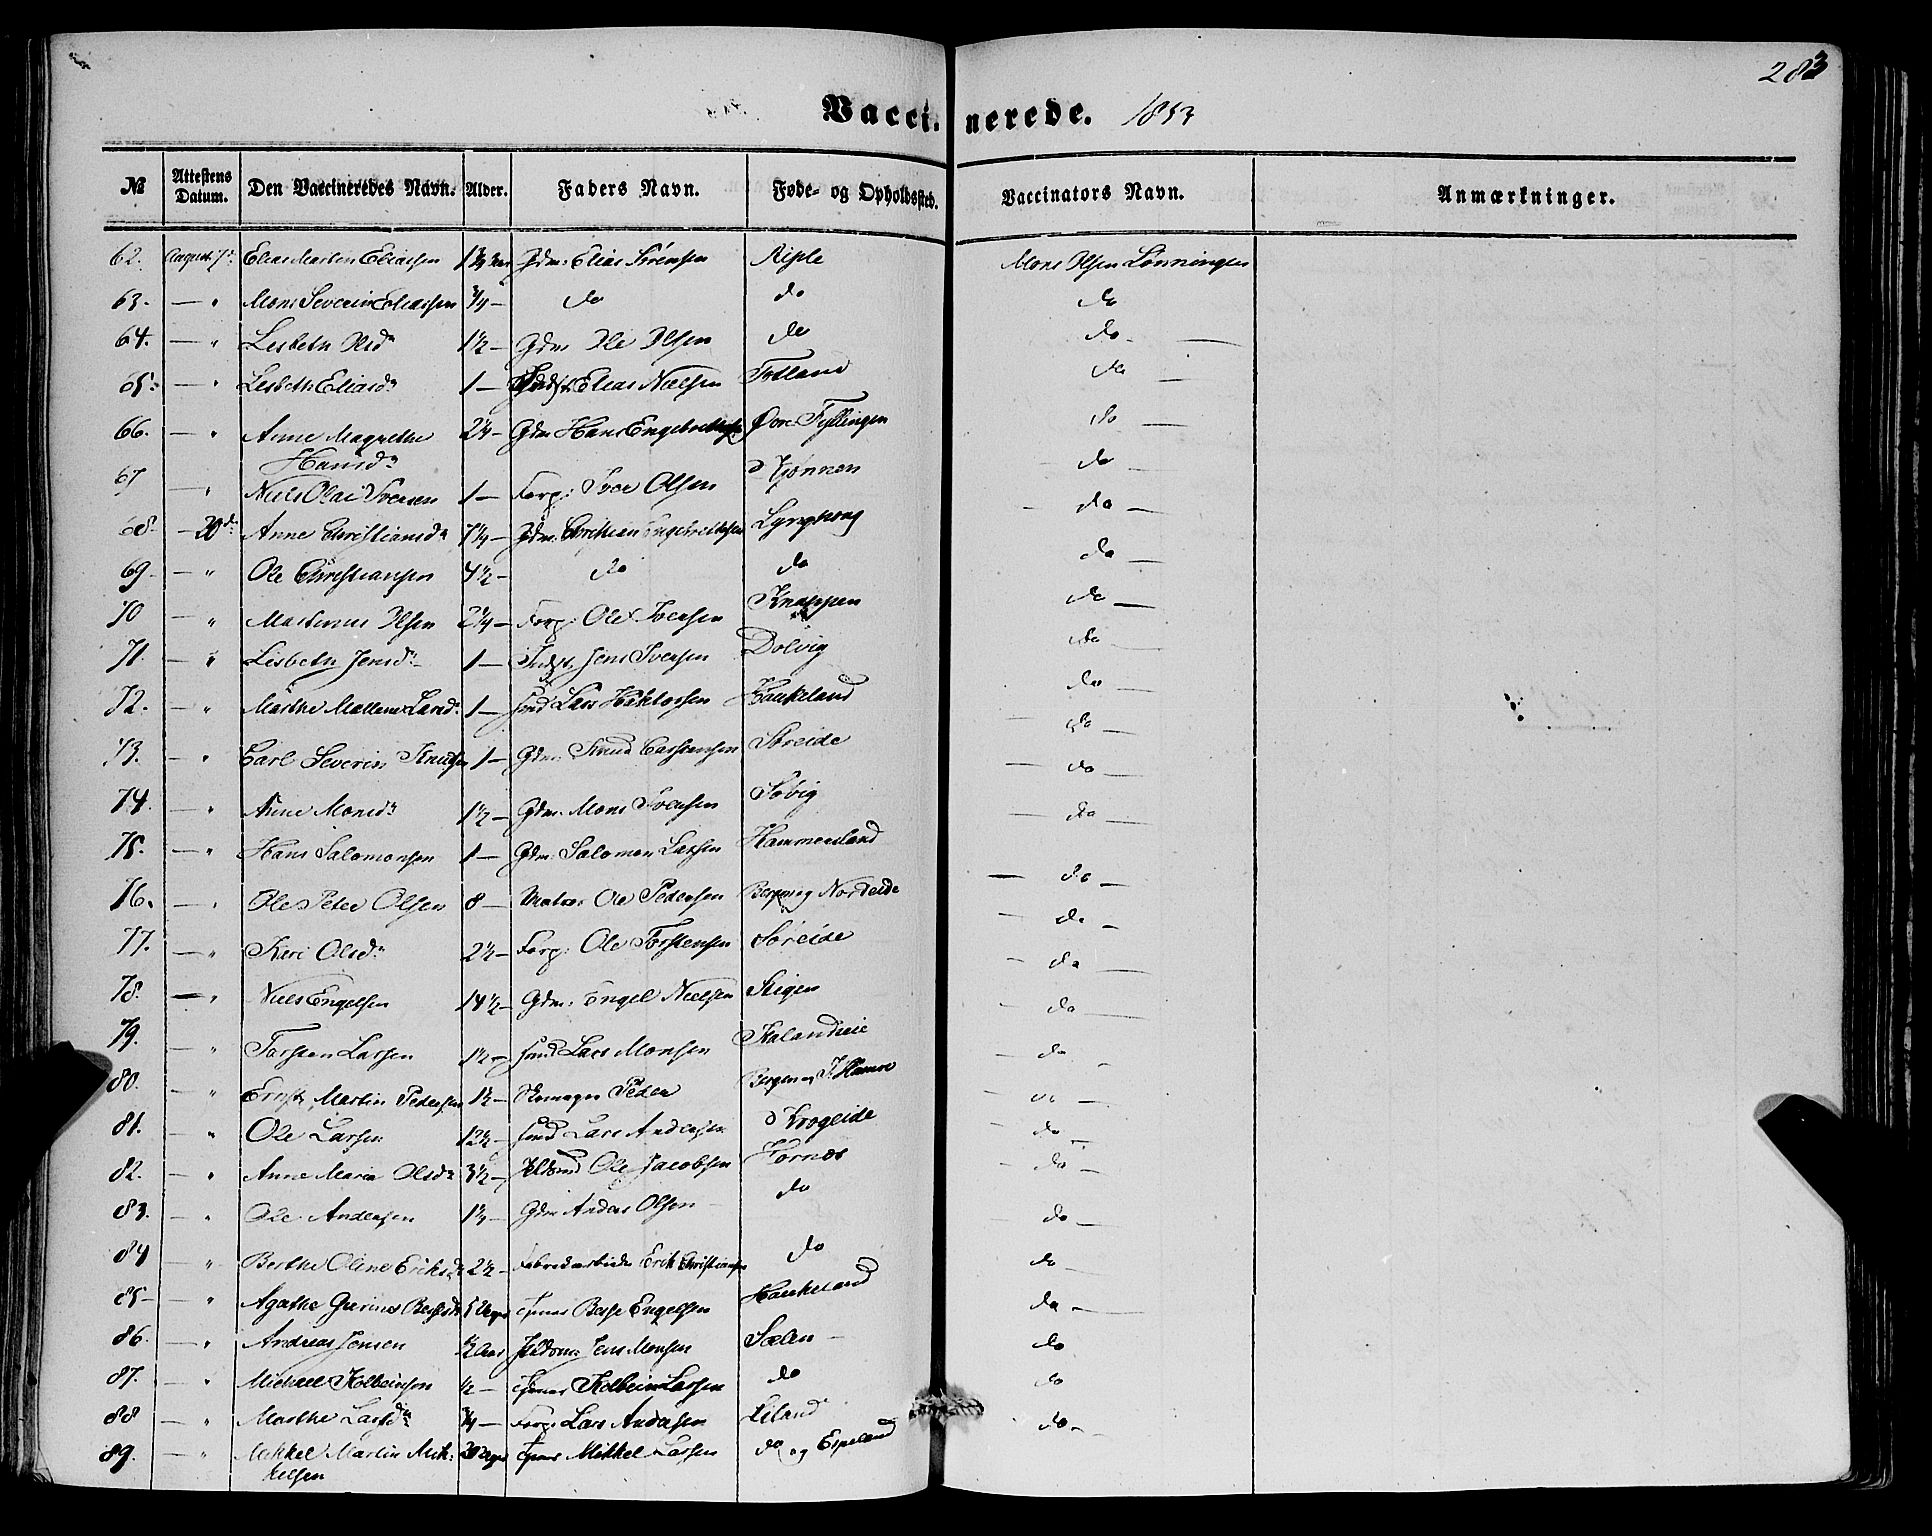 283
Vaccinerede. 1853
No Attestens Datum. Den Vaccineredes Navn. Alder. Faders Navn. Føde- og Opholdssted. Vaccinators Navn. Anmærkninger.
62. August 7de Elias Martin Eliassen Gdm: Elias Sørensen Riple Mons Olsen Lønningen
63. — " Mons Severin Eliassen 3/4 — do do do
64. — " Lisbeth Olsdr 1 1/2 — Gdm Ole Olsen do do —
65. — " Lisbeth Eliasdr 1 — Elias Nielsen Totland do —
66. — " Anne Magrethe Hansdr 2 1/4 — Gdm Hans Engebretsen Øvre Fyllingen do —
67 — " Niels Olai Iversen 1 — Forp: Iver Olsen Kjønnen do —
68. — 20de Anne Christiansdr 7 1/4 — Gdm: Christian Engebretsen Lyngbøe do —
69. — " Ole Christiansen 4 1/2 — do do do —
70 — " Martinus Olsen 2 1/4 — Forp: Ole Iversen Knappen do —
71. — " Lisbeth Jensdr 1 — Indst. Jens Iversen Dolvig do —
72. — " Marthe Mallene Larsdr 1 — Huusmd Lars Haktorsen Haukeland do —
73. — " Carl Severin Knudsen 1 — Gdm: Knud Carstensen Søreide do —
74. — " Anne Monsdr 1 1/2 — Gdm: Mons Iversen Søvig do —
75. — " Hans Salomonsen 1 — Gdm: Salomon Larsen Hammersland do —
76. — " Ole Peter Olsen 8 — Matros Ole Pedersen Bergen og Nordeide do —
77. — " Kari Olsdr 2 1/2 — Forp: Ole Torstensen Søreide do —
78. — " Niels Engelsen 14 1/2 — Gdm: Engel Nielsen Stigen do —
79. — " Torsten Larsen 1 1/2 — Lars Monsen Kalandseie do —
80. — " Ernst Martin Pedersen 1 1/2 — Skomager Peder Bergen og Hamre do —
81. — " Ole Larsen 12 1/2 — Lars Andersen Krogeide do —
82. — " Anne Maria Olsdr 3 1/2 — Ole Jacobsen Hornes do —
83. — " Ole Andersen Gdm Anders Olsen do do —
84 — " Berthe Oline Eriksdr 2 1/2 — Fabrikarbeider Erik Christiansen do do —
85 — " Agathe 5 Uger Engelsen Haukeland do —
86. — " Andreas Jensen 1/2 Aar Jens Monsen Sælen — do
87. — " Michael Kolbeinsen 1/2 — Kolbein Larsen do do
88 — " Marthe Larsdr 3/4 — Forp: Lars Andersen Liland do —
89. — " Mikkel Martin Mik- 20 Uger Mikkel Larsen do og Espeland
kelsen